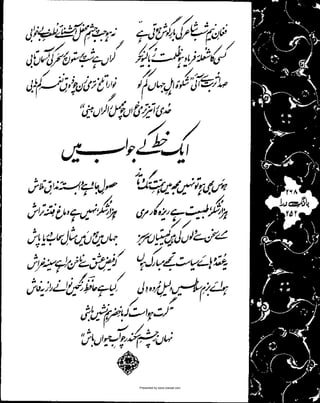 فغانِ نیم شب شاعر کی بارِ گوش ہوتی ہے
نہ ہو جب چشمِ محفل آشنائے لطفِ بے خوابی
کسی کا شعلۂ فریاد ہو ظلمت ربا کیونکر
گراں ہے شب پرستوں پر سحر کی آسماں تابی
صدا تربت سے آئی "شکوۂ اہلِ جہاں کم گو
نوا را تلخ تر می زن چو ذوقِ نغمہ کم یابی
حدی را تیز تر می خواں چو محمل را گراں بینی"
ایک خط کے جواب میں
ہوس بھی ہو تو نہیں مجھ میں ہمتِ تگ و تاز
حصولِ جاہ ہے وابستۂ مذاقِ تلاش
ہزار شکر طبیعت ہے ریزہ کار مری
ہزار شکر نہیں ہے دماغ فتنہ تراش
مرے سخن سے دلوں کی ہیں کھیتیاں سرسبز
جہاں میں ہوں میں مثالِ سحاب دریا پاش
یہ عقدہ ہائے سیاست تجھے مبارک ہوں
کہ فیضِ عشق سے ناخن مرا ہے سینہ خراش
ہوائے بزمِ سلاطیں دلیلِ مردہ دلی
کیا ہے حافظِ رنگیں نوا نے راز یہ فاش
"گرت ہواست کہ با خضر ہم نشیں باشی
نہاں ز چشمِ سکندر چو آبِ حیواں باش"
۲۶۸
بانگِ درا
۲۵۲